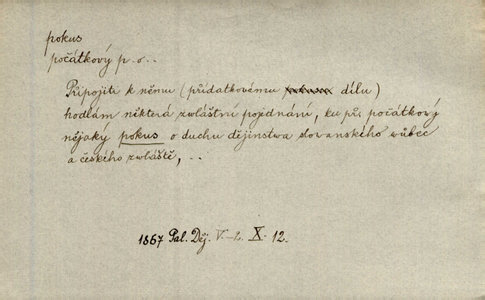 pokus
počátkový p. o..
Připojiti k němu (přídatkovému dílu)
hodlám některá zvláštní pojednání, ku př. počátkový
nějaký pokus o duchu dějinstva slovanského vůbec
a českého zvláště, ..
1867 Pal. Děj. V.-2. X. 12.